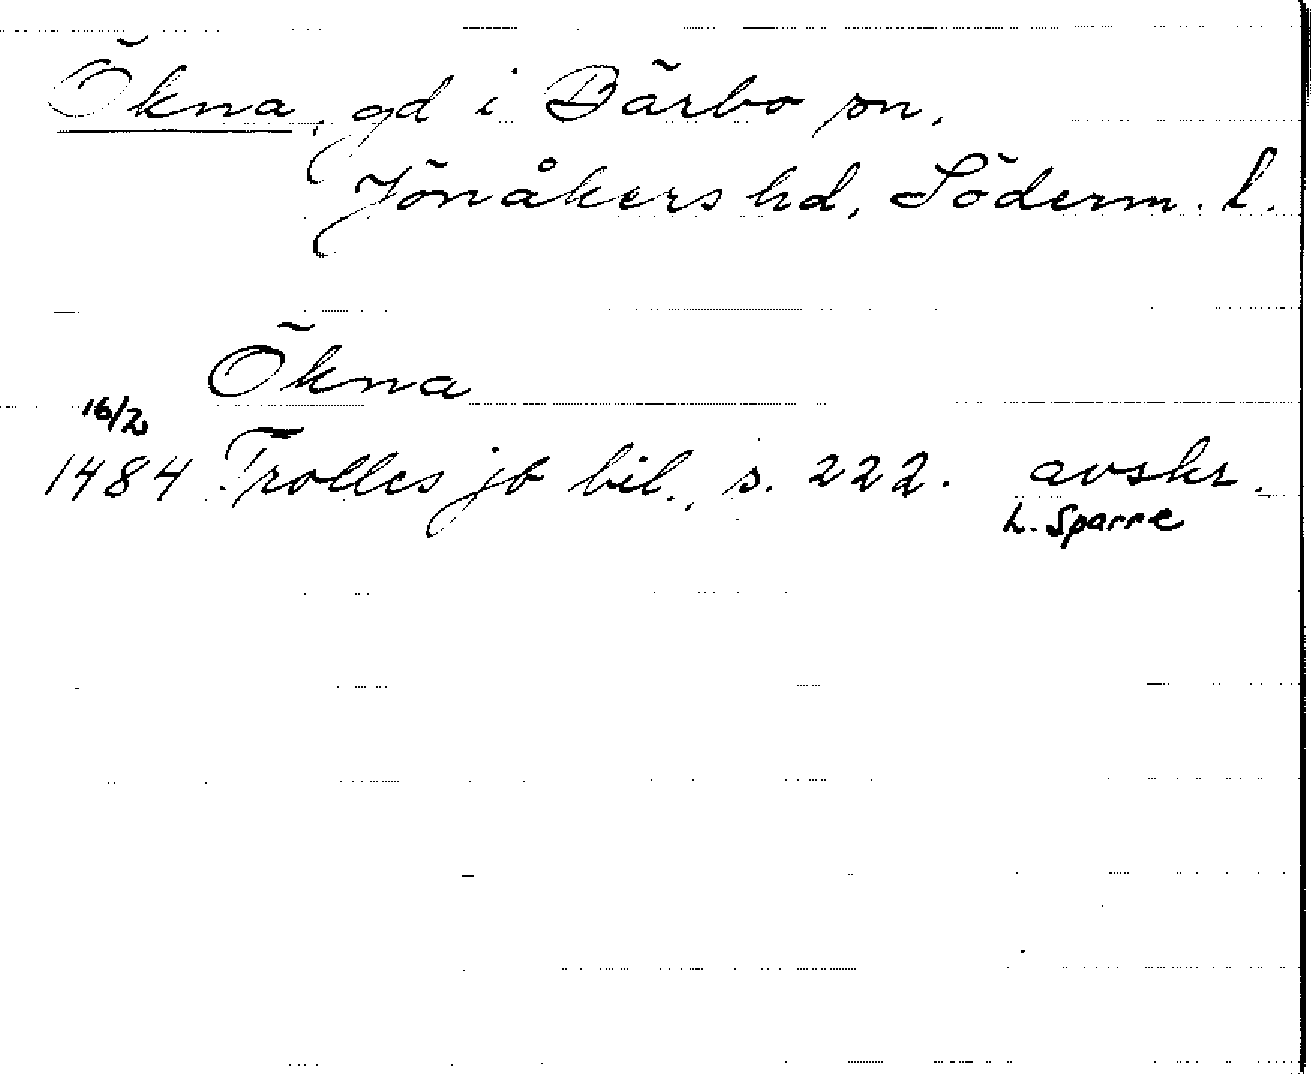 Ökna, gd i Bärbo sn,
Jönåkers hd, Söderm. l.
Ökna
16/2
1484 Trolles jb bil., s. 222. avskr.
L. Sparre